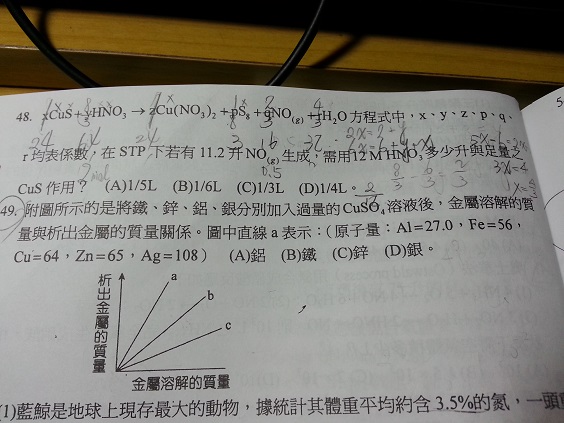 48. xCuS+yHNO₃ → zCu(NO₃)₂+pS₈+qNO(g)+rH₂O 方程式中,x、y、z、p、q、
r 均表係數,在 STP 下若有 11.2 升 NO(g) 生成,需用 12 M HNO₃ 多少升與足量之
CuS 作用? (A)1/5L (B)1/6L (C)1/3L (D)1/4L。
49. 附圖所示的是將鐵、鋅、鋁、銀分別加入過量的 CuSO₄ 溶液後,金屬溶解的質
量與析出金屬的質量關係。圖中直線 a 表示:(原子量:Al=27.0,Fe=56,
Cu=64,Zn=65,Ag=108) (A)鋁 (B)鐵 (C)鋅 (D)銀。
析出金屬的質量
a
b
c
金屬溶解的質量
(1)藍鯨是地球上現存最大的動物,據統計其體重平均約含 3.5%的氮,一頭